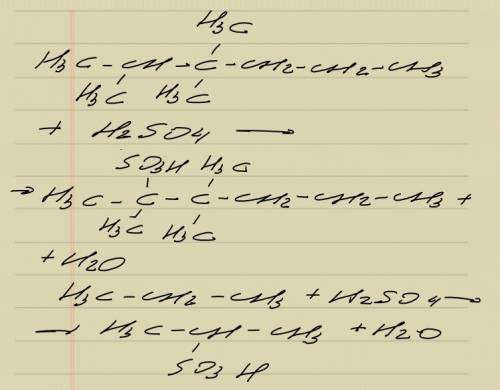 H3C
H3C - CH - C - CH2 - CH2 - CH3
H3C H3C
+ H2SO4 →
SO3H H3C
→ H3C - C - C - CH2 - CH2 - CH3 +
H3C H3C
+ H2O
H3C - CH2 - CH3 + H2SO4 →
→ H3C - CH - CH3 + H2O
SO3H